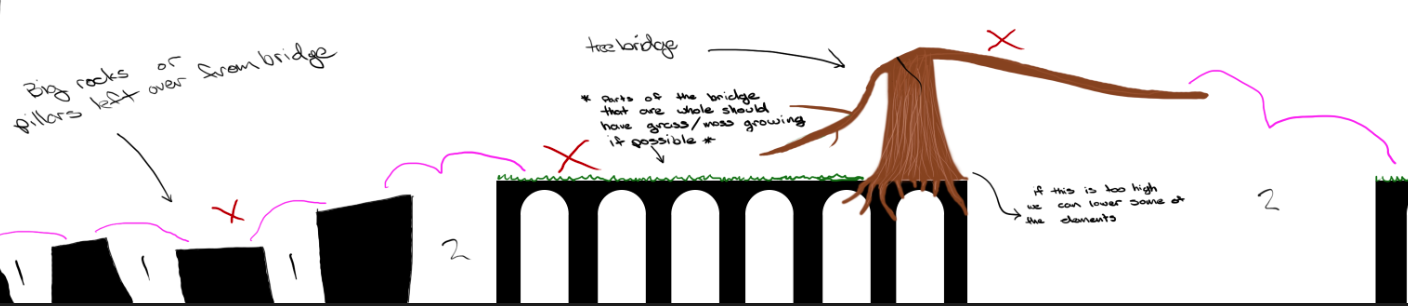 Big rocks or
pillars left over from bridge
tree bridge
* Parts of the bridge
that are whole should
have grass/moss growing
if possible *
if this is too high
we can lower some of
the elements
1
1
1
2
2